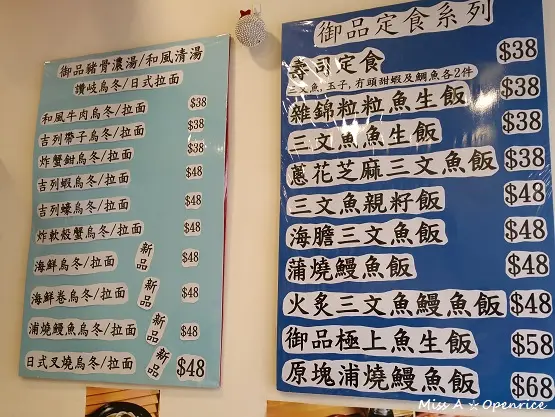 御品豬骨濃湯/和風清湯
讚岐烏冬/日式拉面
和風牛肉烏冬/拉面 $38
吉列帶子烏冬/拉面 $38
炸蟹鉗烏冬/拉面 $38
吉列蝦烏冬/拉面 $48
吉列蠔烏冬/拉面 $48
炸軟殼蟹烏冬/拉面 $48
海鮮烏冬/拉面 新品 $48
海鮮卷烏冬/拉面 新品 $48
浦燒鰻魚烏冬/拉面 新品 $48
日式叉燒烏冬/拉面 新品 $48
御品定食系列
壽司定食 $38
三文魚,玉子,冇頭甜蝦及鯛魚各2件
雜錦粒粒魚生飯 $38
三文魚魚生飯 $38
蔥花芝麻三文魚魚飯 $38
三文魚親籽飯 $48
海膽三文魚飯 $48
蒲燒鰻魚飯 $48
火炙三文魚鰻魚飯 $48
御品極上魚生飯 $58
原塊浦燒鰻魚飯 $68
Miss A ☆ Openrice